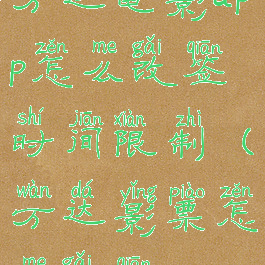 万达电影ap
zěn me gǎi qiān
p怎么改签
shí jiān xiàn zhì
时间限制（
wàn dá yǐng piào zěn
万达影票怎
me gǎi qiān